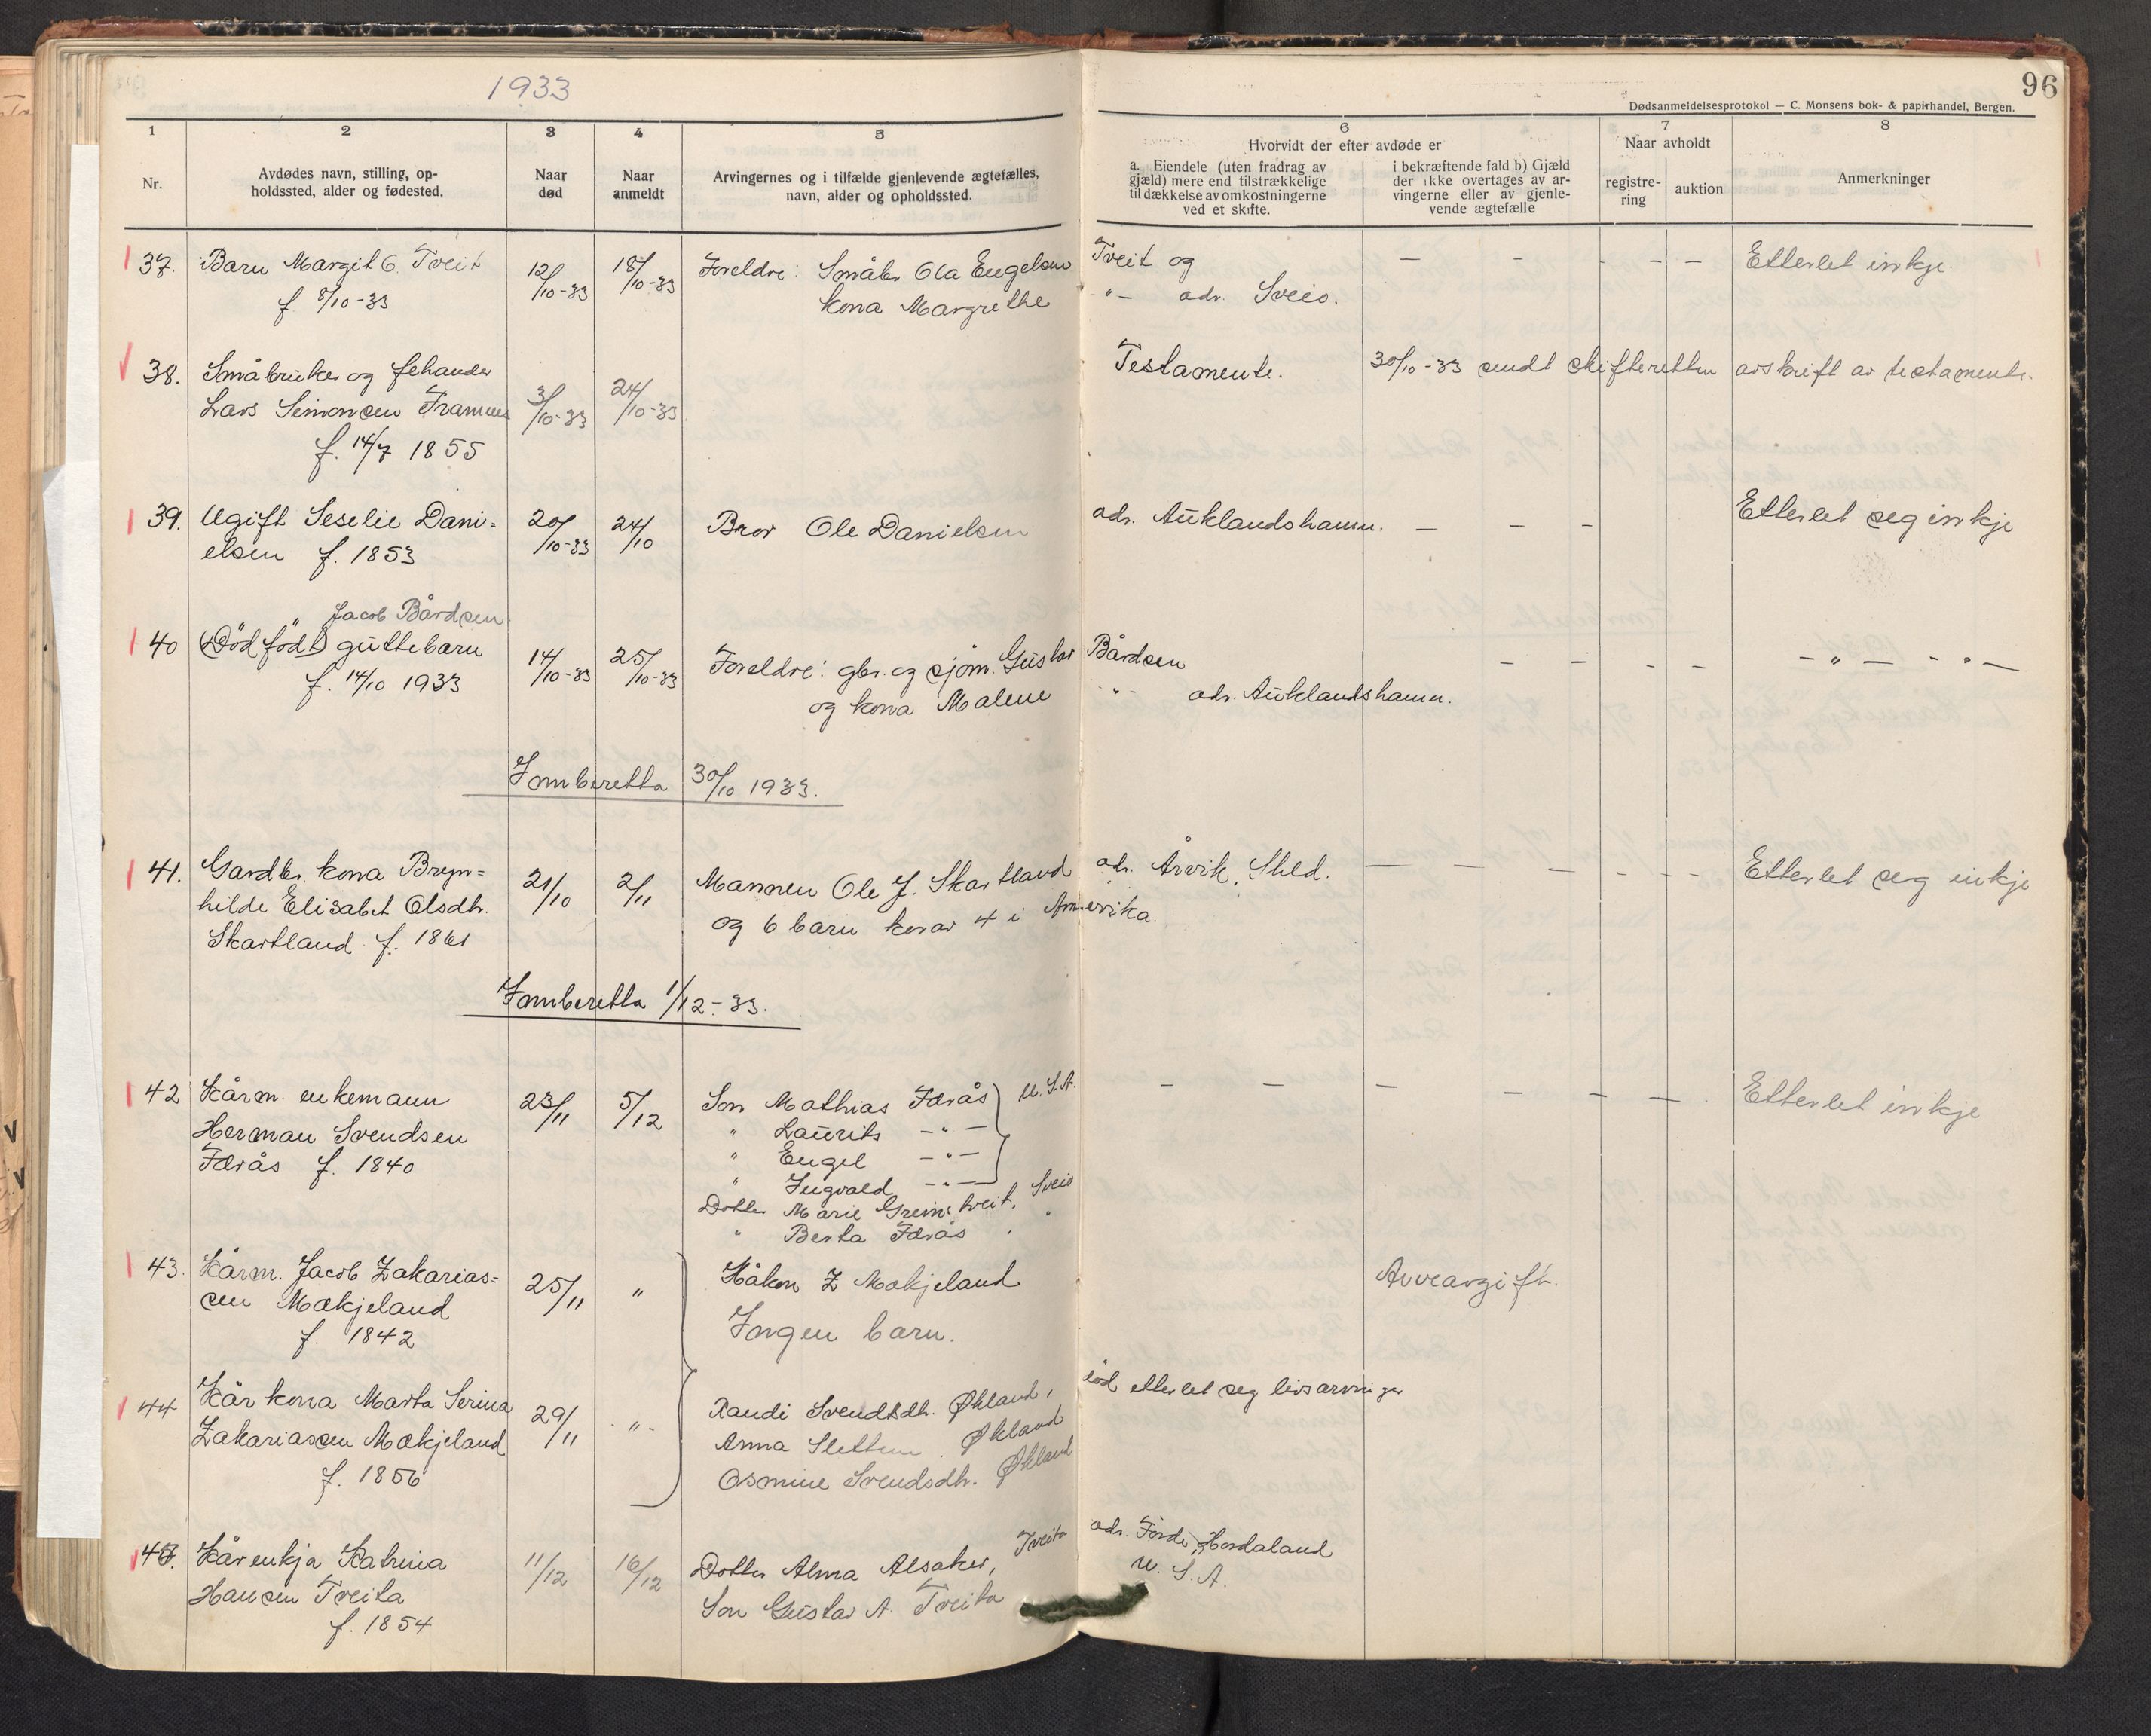 1933
96
Dødsanmeldelsesprotokol — C. Monsens bok- & papirhandel, Bergen.
1 2 3 4 5 6 7 8
Nr.
Avdødes navn, stilling, op-
holdssted, alder og fødested.
Naar
død
Naar
anmeldt
Arvingernes og i tilfælde gjenlevende ægtefælles,
navn, alder og opholdssted.
Hvorvidt der efter avdøde er
a. Eiendele (uten fradrag av
gjæld) mere end tilstrækkelige
til dækkelse av omkostningerne
ved et skifte.
i bekræftende fald b) Gjæld
der ikke overtages av ar-
vingerne eller av gjenle-
vende ægtefælle
Naar avholdt
registre-
ring
auktion
Anmerkninger
37. Barn Margit O. Tveit 12/10-33 18/10-33 Foreldre: Småbr Ola Engelsen Tveit og — — — — — Etterlet inkje.
f 8/10-33 kona Margrethe -"- adr. Sveio.
38. Småbruker og fehandler 3/10-33 24/10-33 Testamente. 30/10-33 sendt skifteretten avskrift av testamente.
Lars Simonsen
f. 14/7 1855
39. Ugift Seselie Dani- 20/10-33 24/10 Bror Ole Danielsen adr. Auklandshamn. — — — Etterlet seg inkje
elsen f. 1853
Jacob Bårdsen
40 (Dødfødt) guttebarn 14/10-33 25/10-33 Foreldre: gbr. og sjøm. Gustav Bårdsen — — — — — " — - " —
f. 14/10 1933 og kona Malene -"- adr. Auklandshamn.
Innberetta 30/10 1933.
41. Gardbr. kona Bryn- 21/10 2/11 Mannen Ole J. Skartland adr. Årvik, Skld. — — — — — — Etterlet seg inkje
hilde Elisabet Olsdtr. og 6 barn korav 4 i Amerika.
Skartland f. 1861
Innberetta 1/12-33.
42 Kårm. enkemann 23/11 5/12 Son Mathias Færås U.S.A. — — — — — — Etterlet inkje
Herman Svendsen " Laurits -"-
Færås f. 1840 " Engel -"-
" Ingvald -"-
Dotter Marie Grimstveit, Sveio
" Berta Færås "
43. Kårm. Jacob Zakarias- 25/11 " Håkon Z Mækjeland Arveavgift.
sen Mækjeland Ingen barn.
f. 1842
44 Kårkona Marta Serina 29/11 " Randi Svendsdtr. Økland, etterlet seg livsarvinger
Zakariassen Mækjeland Anna Sletten. Økland
f. 1856 Osmine Svendsdtr. Økland
45. Kårenkja Katrina 11/12 16/12 Dotter Alma Alsaker, Tveita adr. Førde, Hordaland
Hansen Tveita Son Gustav A. Tveita U.S.A.
f. 1854